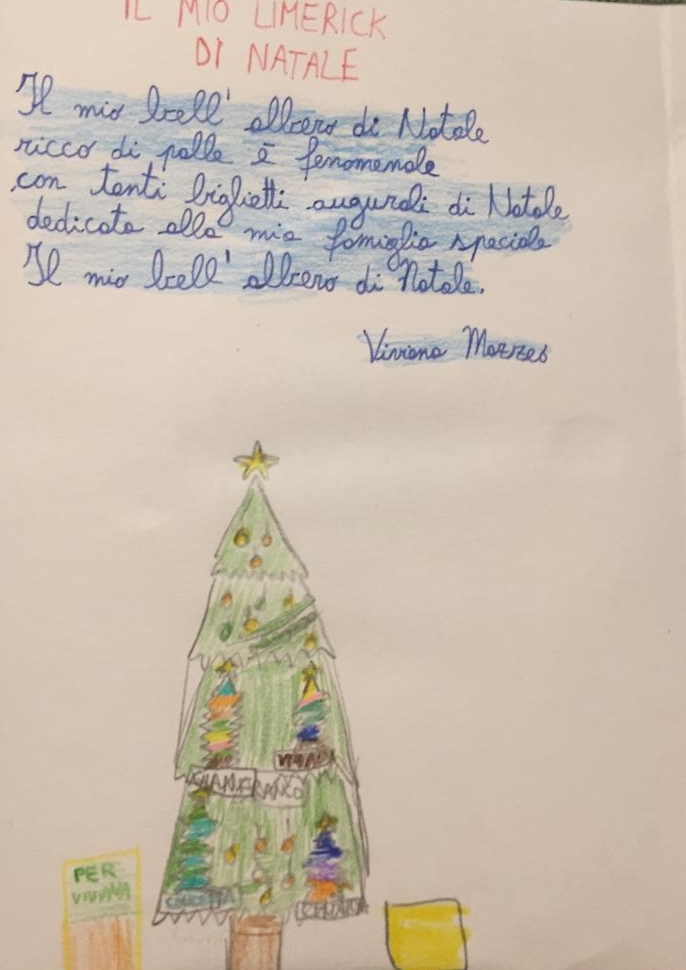 IL MIO LIMERICK
DI NATALE
Il mio bell' albero di Natale
ricco di palle è fenomenale
con tanti biglietti augurali di Natale
dedicata alla mia famiglia speciale
Il mio bell' albero di Natale.
Viviana
GIANFRANCO
PER
VIVIANA